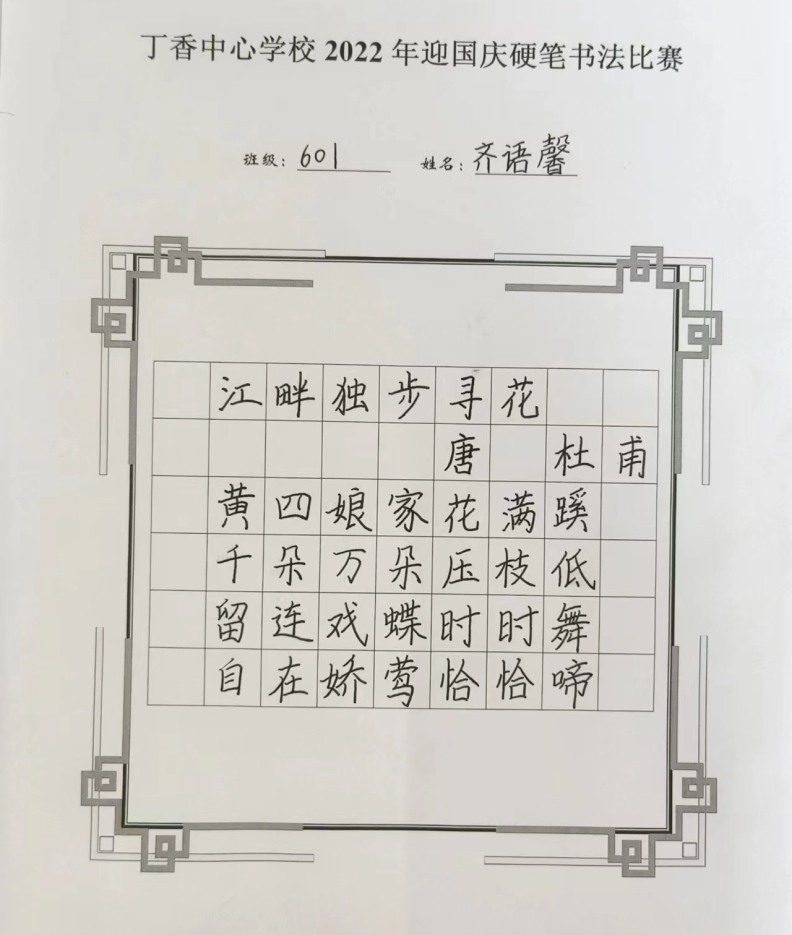 丁香中心学校 2022 年迎国庆硬笔书法比赛
班级：601 姓名：齐语馨
江畔独步寻花
唐 杜甫
黄四娘家花满蹊
千朵万朵压枝低
留连戏蝶时时舞
自在娇莺恰恰啼